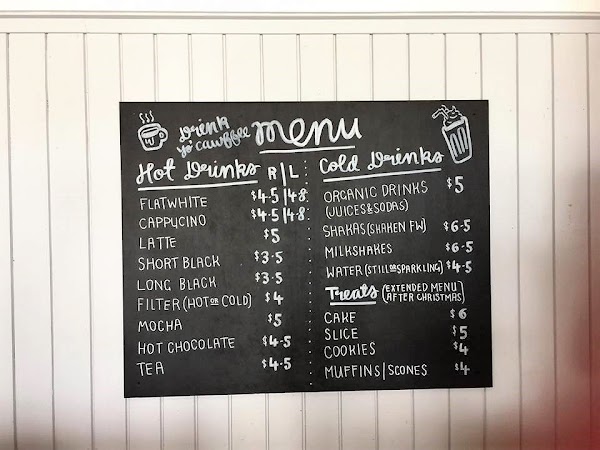 Drink
yo' cawffee
menu
Hot Drinks R|L
FLATWHITE $4.5|4.8
CAPPUCINO $4.5|4.8
LATTE $5
SHORT BLACK $3.5
LONG BLACK $3.5
FILTER (HOT OR COLD) $4
MOCHA $5
HOT CHOCOLATE $4.5
TEA $4.5
Cold Drinks
ORGANIC DRINKS $5
(JUICES & SODAS)
SHAKAS (SHAKEN FW) $6.5
MILKSHAKES $6.5
WATER (STILL OR SPARKLING) $4.5
Treats (EXTENDED MENU
AFTER CHRISTMAS)
CAKE $6
SLICE $5
COOKIES $4
MUFFINS|SCONES $4